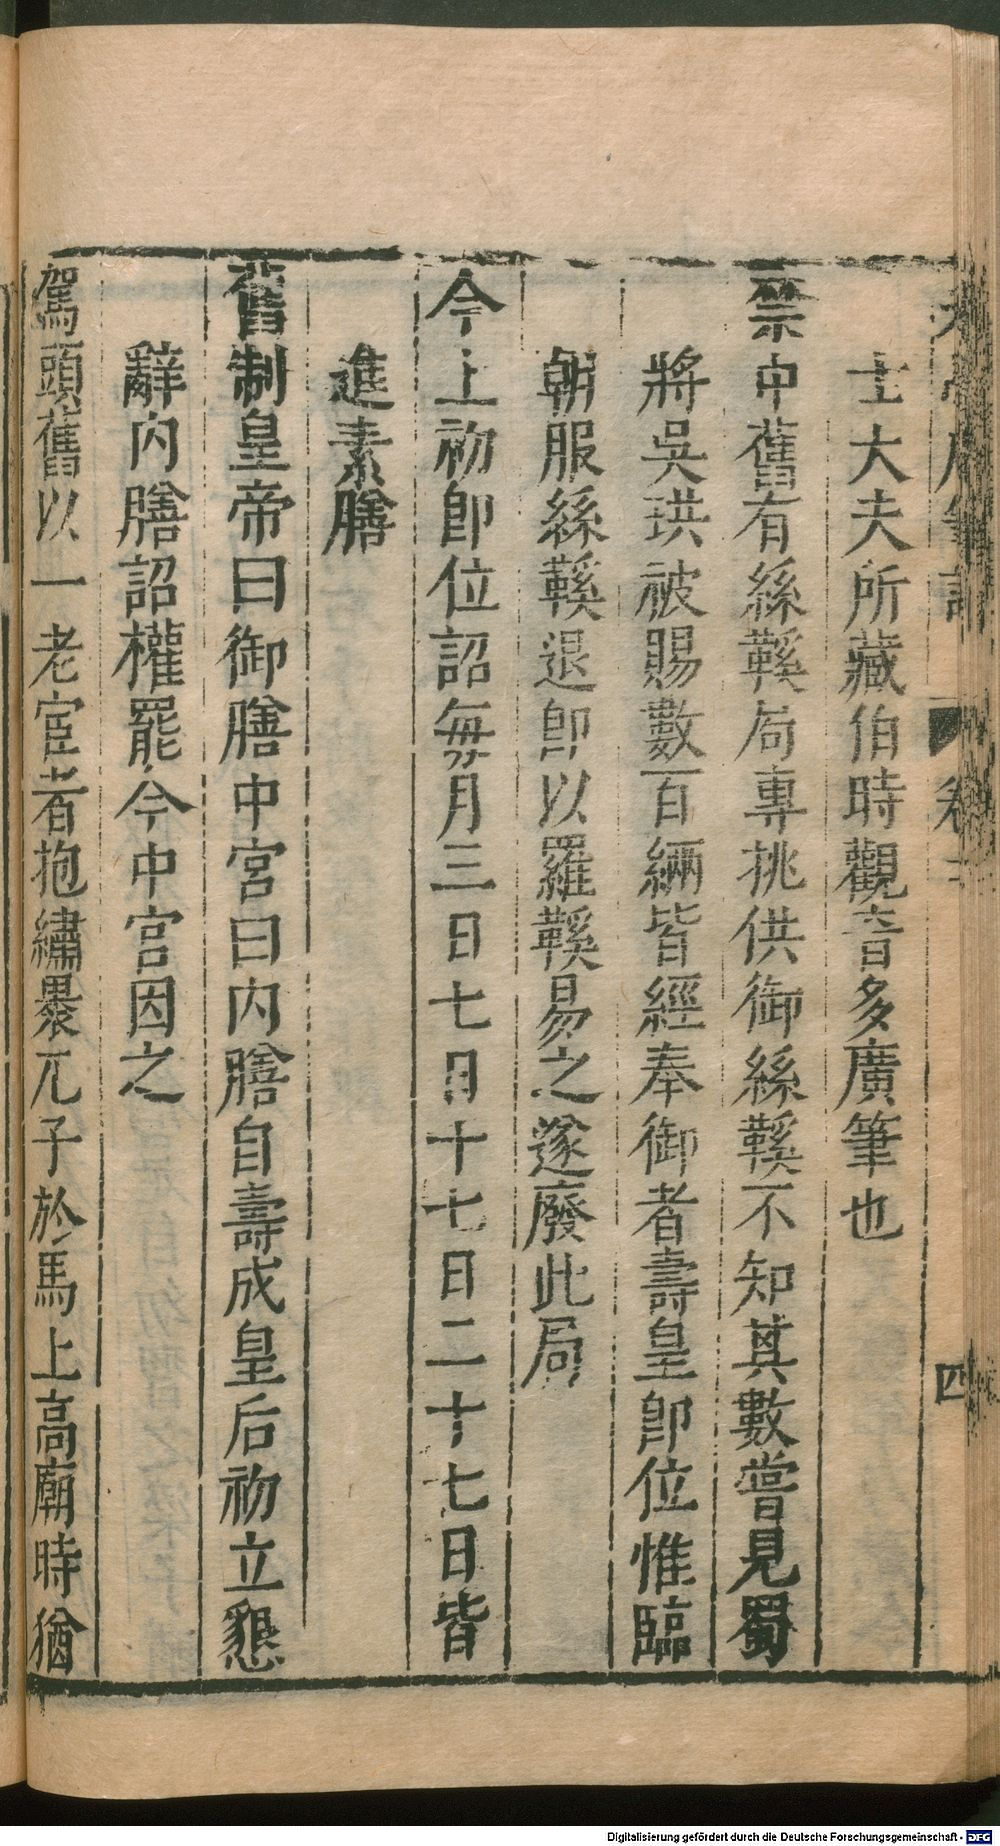 士大夫所藏伯時觀音多廣筆也
禁中舊有絲鞵局專挑供御絲鞵不知其數嘗見蜀
將吳珙被賜數百緉皆經奉御者壽皇卽位惟臨
朝服絲鞵退卽以羅鞵易之遂廢此局
今上初卽位詔每月三日七日十七日二十七日皆
進素膳
舊制皇帝曰御膳中宮曰內膳自壽成皇后初立懇
辭內膳詔權罷今中宮因之
駕頭舊以一老宦者抱繡褁兀子於馬上高廟時猶
卷
四
Digitalisierung gefördert durch die Deutsche Forschungsgemeinschaft - DFG